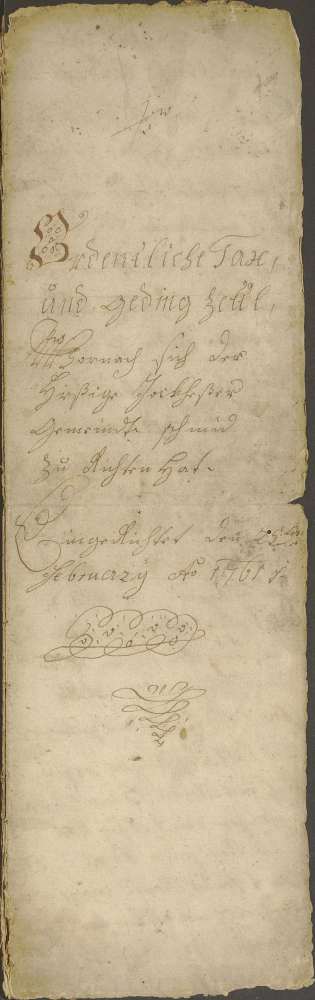 Ordentliche Tax,
und geding Zetl,
Wornach sich der
Gemeindt schmid
Zu Richten Hat.
Eingerichtet den
February Ao 1761